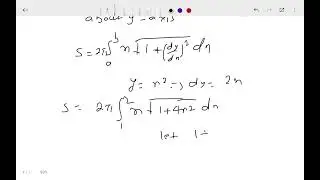 about y-axis
S = 2π ∫₀³ x √(1 + (dy/dx)²) dx
y = x² → dy = 2x
S = 2π ∫₁² x √(1 + 4x²) dx
let 1+